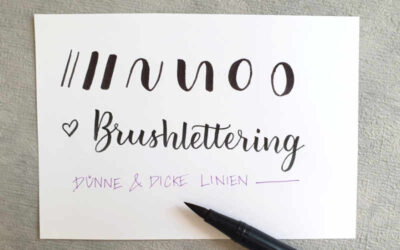 ♡ Brushlettering
DÜNNE & DICKE LINIEN